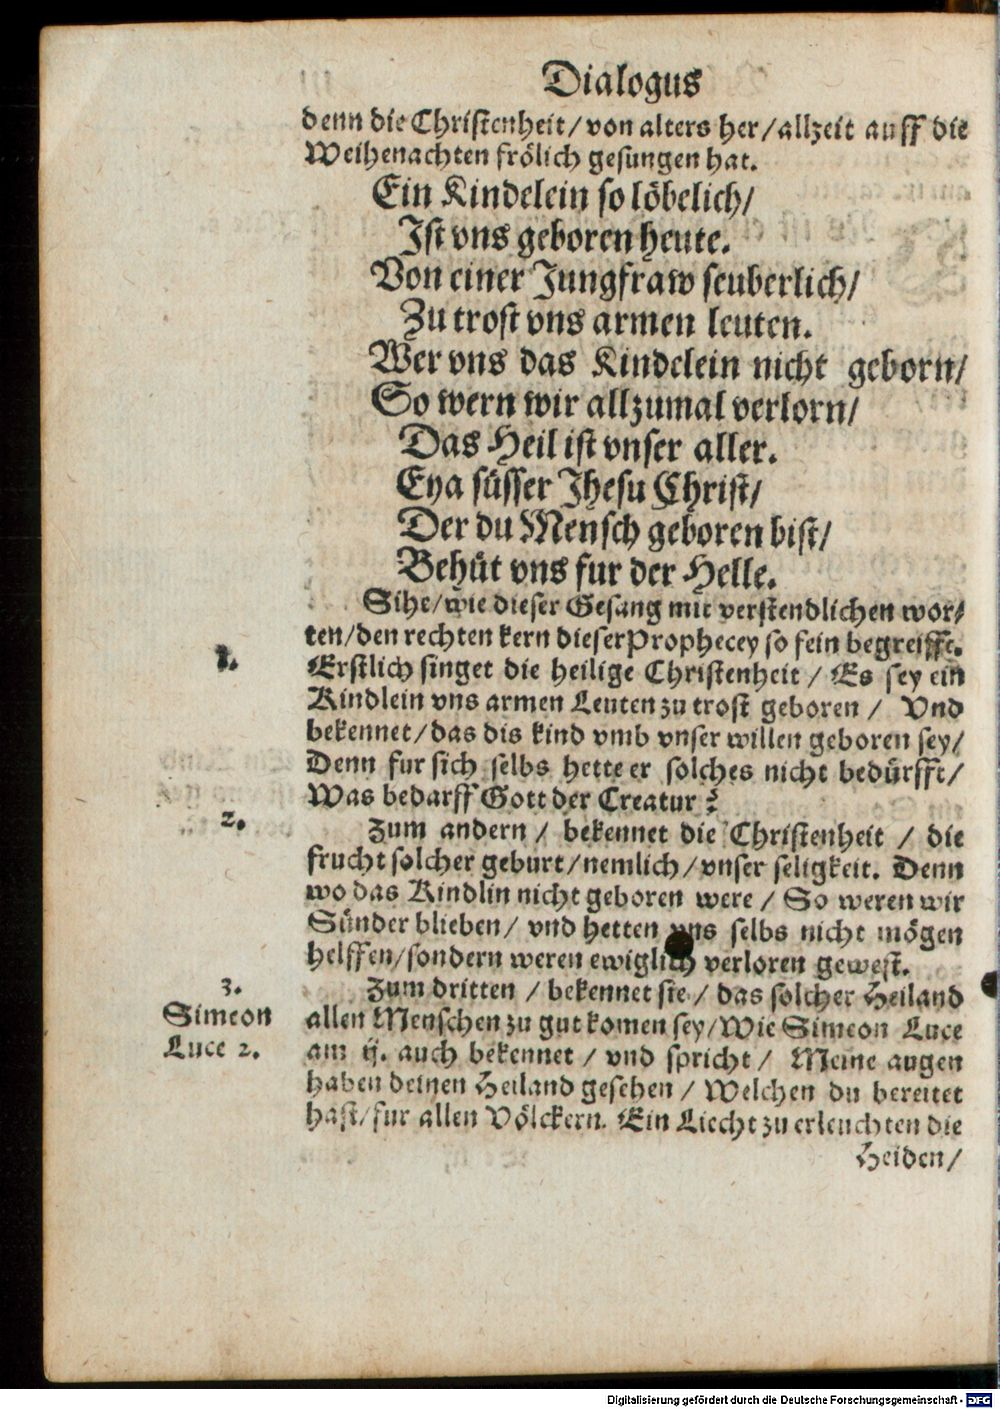 Dialogus
denn die Christenheit/ von alters her/ allzeit auff die
Weihenachten frölich gesungen hat.
Ein Kindelein so löbelich/
Ist vns geboren heute.
Von einer Jungfraw seuberlich/
Zu trost vns armen leuten.
Wer vns das Kindelein nicht geborn/
So wern wir allzumal verlorn/
Das Heil ist vnser aller.
Eya süsser Jhesu Christ/
Der du Mensch geboren bist/
Behüt vns fur der Helle.
Sihe/ wie dieser Gesang mit verstendlichen wor/
ten/ den rechten kern dieser Prophecey so fein begreiffe.
1.
Erstlich singet die heilige Christenheit / Es sey ein
Kindlein vns armen Leuten zu trost geboren / Vnd
bekennet/ das dis kind vmb vnser willen geboren sey/
Denn fur sich selbs hette er solches nicht bedürfft/
Was bedarff Gott der Creatur?
2.
Zum andern / bekennet die Christenheit / die
frucht solcher geburt/ nemlich/ vnser seligkeit. Denn
wo das Kindlin nicht geboren were / So weren wir
Sünder blieben/ vnd hetten vns selbs nicht mögen
helffen/ sondern weren ewiglich verloren gewest.
3.
Zum dritten / bekennet sie / das solcher Heiland
Simeon
allen Menschen zu gut komen sey/ Wie Simeon Luce
Luce 2.
am ij. auch bekennet / vnd spricht / Meine augen
haben deinen Heiland gesehen / Welchen du bereitet
hast/ fur allen Völckern. Ein Liecht zu erleuchten die
Heiden/
Digitalisierung gefördert durch die Deutsche Forschungsgemeinschaft - DFG